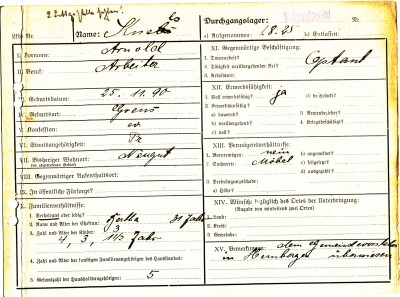 Lfde Nr.
Name:
Durchgangslager:
a) Aufgenommen: 1.8.25 b) Entlassen:
I. Vorname: Arnold
II. Beruf: Arbeiter
III. Geburtsdatum: 25. 11. 90
IV. Geburtsort:
V. Konfession: ev
VI. Staatsangehörigkeit: Pr
VII. Bisheriger Wohnort: Neugut
(im abgetretenen Gebiet)
VIII. Gegenwärtiger Aufenthaltsort:
IX. In öffentliche Fürsorge?
X. Familienverhältnisse:
1. Verheiratet oder ledig?
2. Name und Alter der Ehefrau: 31 Jahr
3. Zahl und Alter der Kinder: 3
4, 3, 1 1/2 Jahr
4. Zahl und Alter der sonstigen Familienangehörigen des Haushaltes:
5. Gesamtzahl der Haushaltsangehörigen: 5
XI. Gegenwärtige Beschäftigung:
1. Dauerarbeit? Optant
2. Tätigkeit vorübergehender Art?
3. Arbeitslos?
XII. Erwerbsfähigkeit:
1. Voll erwerbsfähig? ja
2. Erwerbsunfähig?
a) dauernd?
b) vorübergehend?
c) voll?
d) beschränkt?
3. Rentenbezieher?
4. Kriegsbeschädigt?
XIII. Vermögensverhältnisse:
1. Barvermögen: nein
2. Sachwerte: Möbel
3. Verdrängungsschäden:
a) Höhe?
b) angemeldet?
c) beigelegt?
d) ausgezahlt?
XIV. Wünsche bezüglich des Ortes der Unterbringung:
(Angabe von mindestens zwei Orten)
1. Land:
2. Kreis:
3. Gemeinde:
XV. Bemerkungen: dem Gemeindevorsteher
in überwiesen